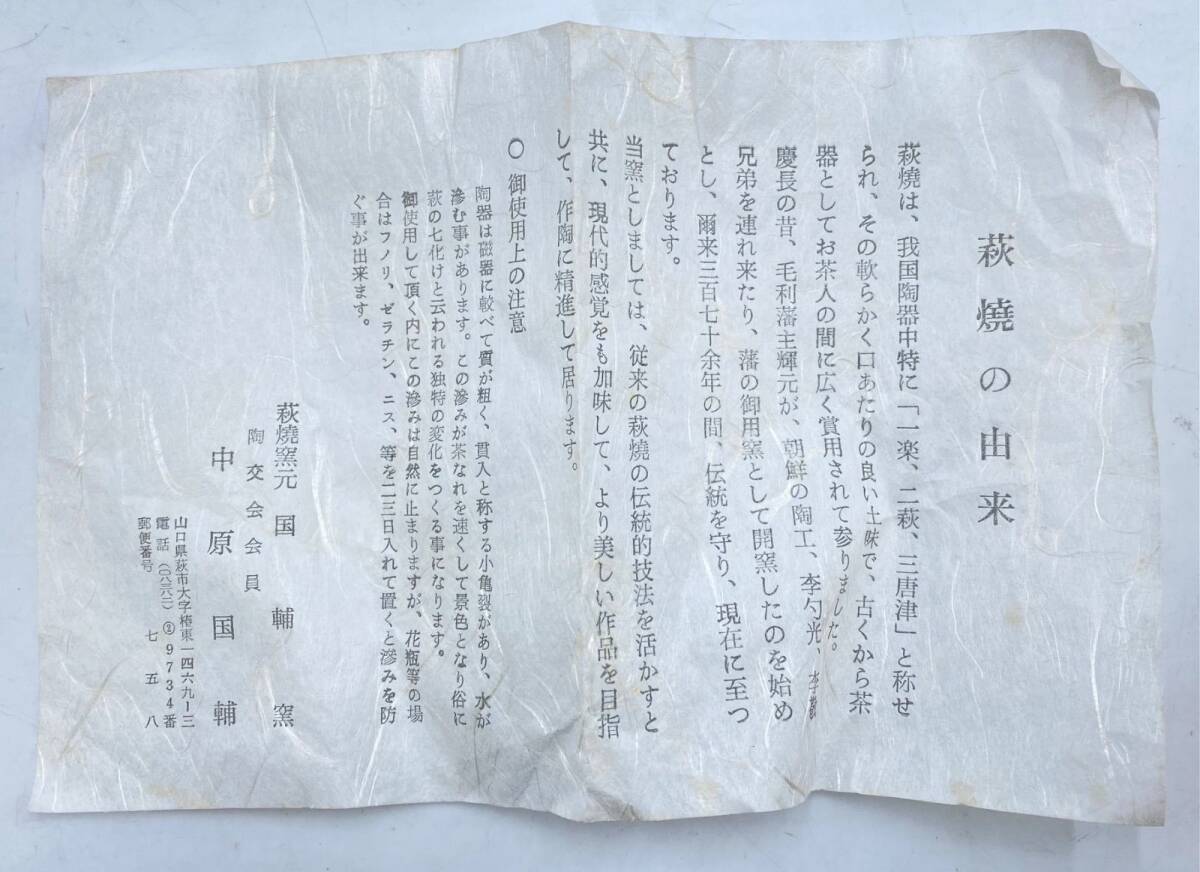 萩燒の由来
萩燒は、我国陶器中特に「一楽、二萩、三唐津」と称せ
られ、その軟らかく口あたりの良い土味で、古くから茶
器としてお茶人の間に広く賞用されて参りました。
慶長の昔、毛利藩主輝元が、朝鮮の陶工、李勺光、李敬
兄弟を連れ来たり、藩の御用窯として開窯したのを始め
とし、爾来三百七十余年の間、伝統を守り、現在に至っ
ております。
当窯としましては、従来の萩燒の伝統的技法を活かすと
共に、現代的感覚をも加味して、より美しい作品を目指
して、作陶に精進して居ります。
○ 御使用上の注意
陶器は磁器に較べて質が粗く、貫入と称する小亀裂があり、水が
滲む事があります。この滲みが茶なれを速くして景色となり俗に
萩の七化けと云われる独特の変化をつくる事になります。
御使用して頂く内にこの滲みは自然に止まりますが、花瓶等の場
合はフノリ、ゼラチン、ニス、等を二三日入れて置くと滲みを防
ぐ事が出来ます。
萩燒窯元 国輔窯
陶交会会員
中原国輔
山口県萩市大字椿東一四六九ー三
電話（〇八三八二）②9734番
郵便番号 七五八